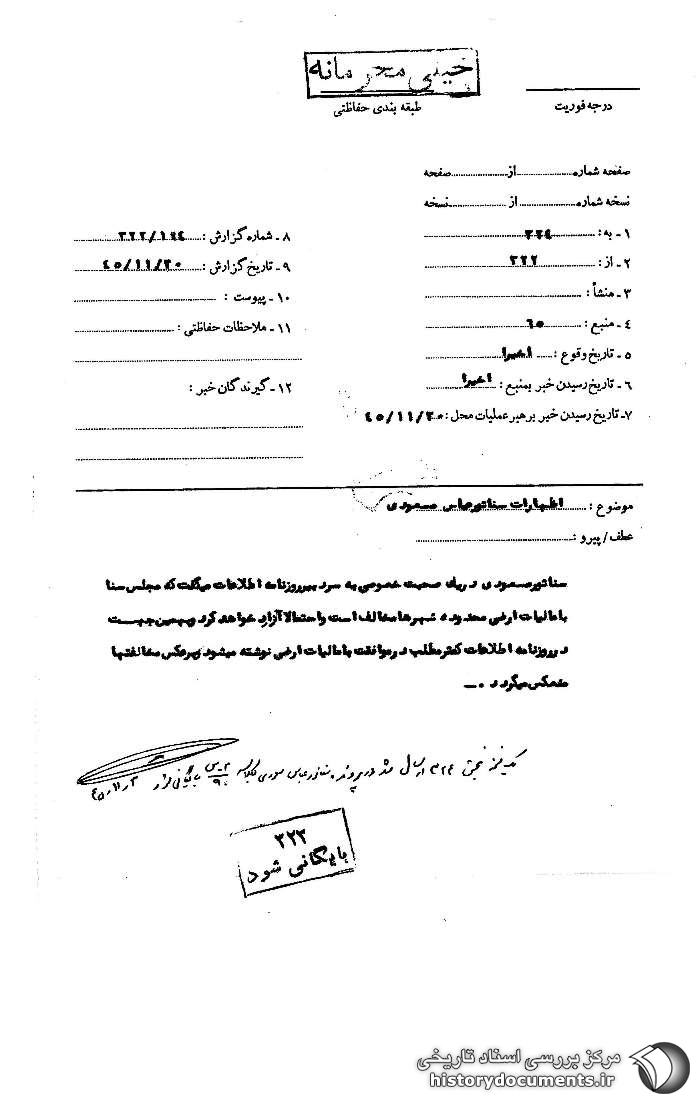 خیلی محرمانه
طبقه بندی حفاظتی
درجه فوریت
صفحه شماره ........ از ........ صفحه
نسخه شماره ........ از ........ نسخه
۱ - به : ۳۲۴
۲ - از : ۳۲۲
۳ - منشأ :
۴ - منبع : ۶۵
۵ - تاریخ وقوع : اخیرا
۶ - تاریخ رسیدن خبر بمنبع : اخیرا
۷- تاریخ رسیدن خبر برهبر عملیات محل : ۴۵/۱۱/۲۰
۸ - شماره گزارش : ۳۲۲/۱۶۴
۹ - تاریخ گزارش : ۴۵/۱۱/۲۰
۱۰ - پیوست :
۱۱ - ملاحظات حفاظتی :
۱۲ - گیرندگان خبر :
موضوع : اظهارات سناتورعباس مسعودی
عطف / پیرو :
سناتورمسعودی دریک صحبت خصوصی به سردبیرروزنامه اطلاعات میگفت که مجلس سنا
با مالیات ارضی محدوده شهرها مخالف است واحتمالا آنراد خواهد کرد وبهمین جهت
درروزنامه اطلاعات کمترمطلب درموافقت با مالیات ارضی نوشته میشود وبرعکس مخالفتها
منعکس میگردد .
یک نسخه ۳۲۴ ارسال شد در پرونده سناتور عباس مسعودی بایگانی
۴۵/۱۱/۲۰
۳۲۲
بایگانی شود
مرکز بررسی اسناد تاریخی
historydocuments.ir